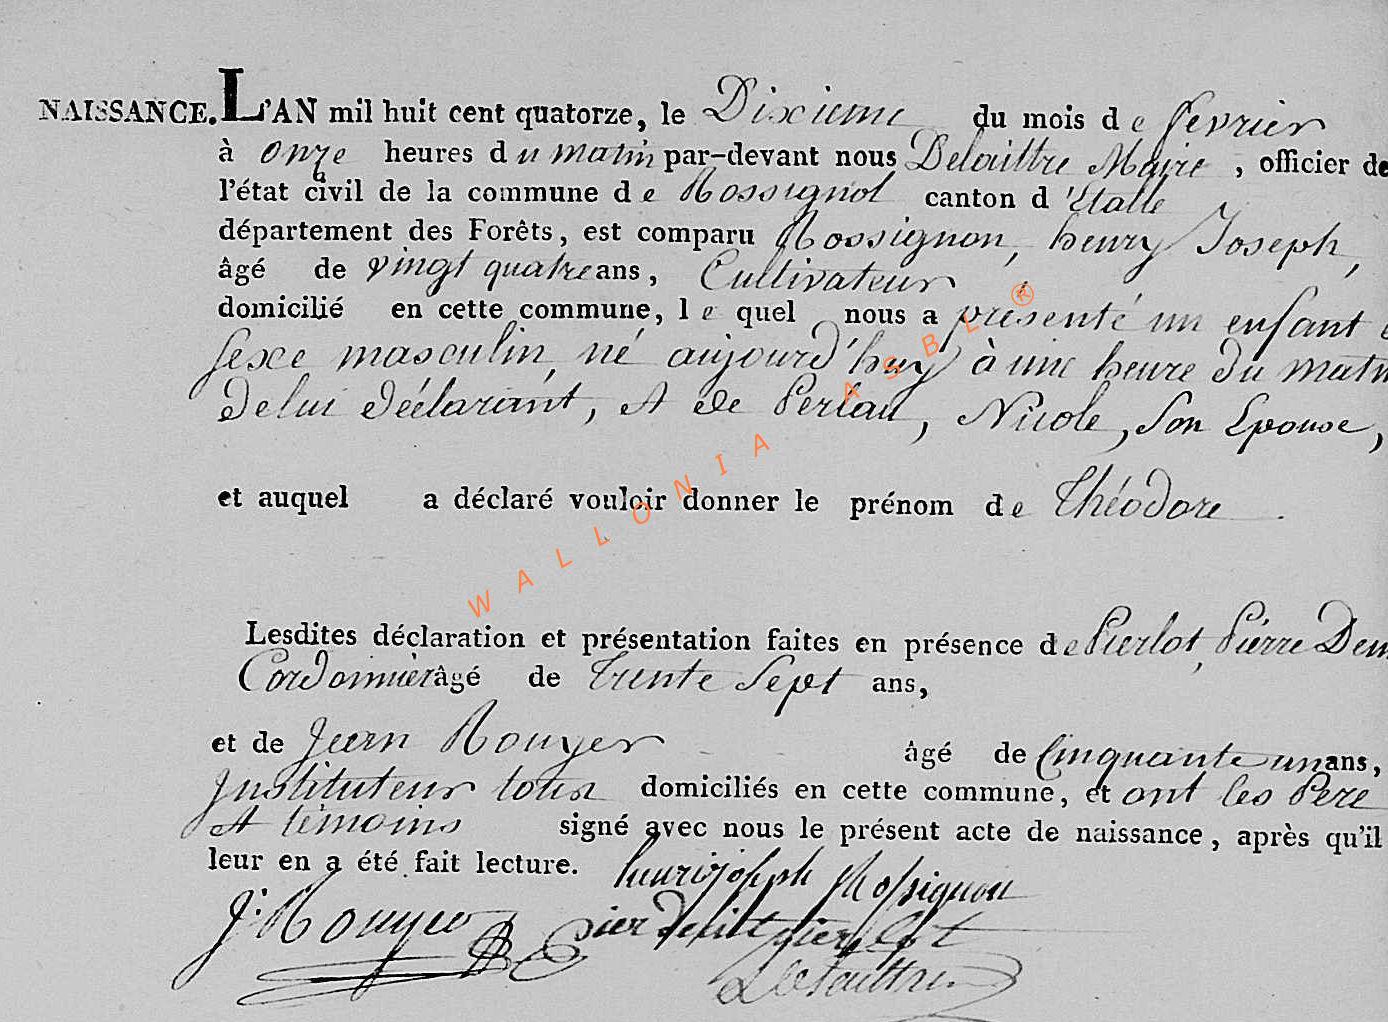 NAISSANCE. L'AN mil huit cent quatorze, le Dixieme du mois de fevrier
à onze heures du matin par-devant nous Delaittre Maire, officier de
l'état civil de la commune de Rossignol canton d'Etalle
département des Forêts, est comparu Rossignon, henry Joseph,
âgé de vingt quatre ans, Cultivateur
domicilié en cette commune, le quel nous a présenté un enfant
Sexe masculin, né aujourd'huy à une heure du matin
De lui déclarant, et de Perlau, Nicole, Son Epouse,
et auquel a déclaré vouloir donner le prénom de Théodore.
Lesdites déclaration et présentation faites en présence de Pierlot, Pierre Den
Cordonnier âgé de trente Sept ans,
et de Jean Rouyer âgé de Cinquante un ans,
Instituteur tous domiciliés en cette commune, et ont les Pere
et témoins signé avec nous le présent acte de naissance, après qu'il
leur en a été fait lecture. henri joseph Rossignon
J. Rouyer pierlot
Delaittre
WALLONIA ASBL ®